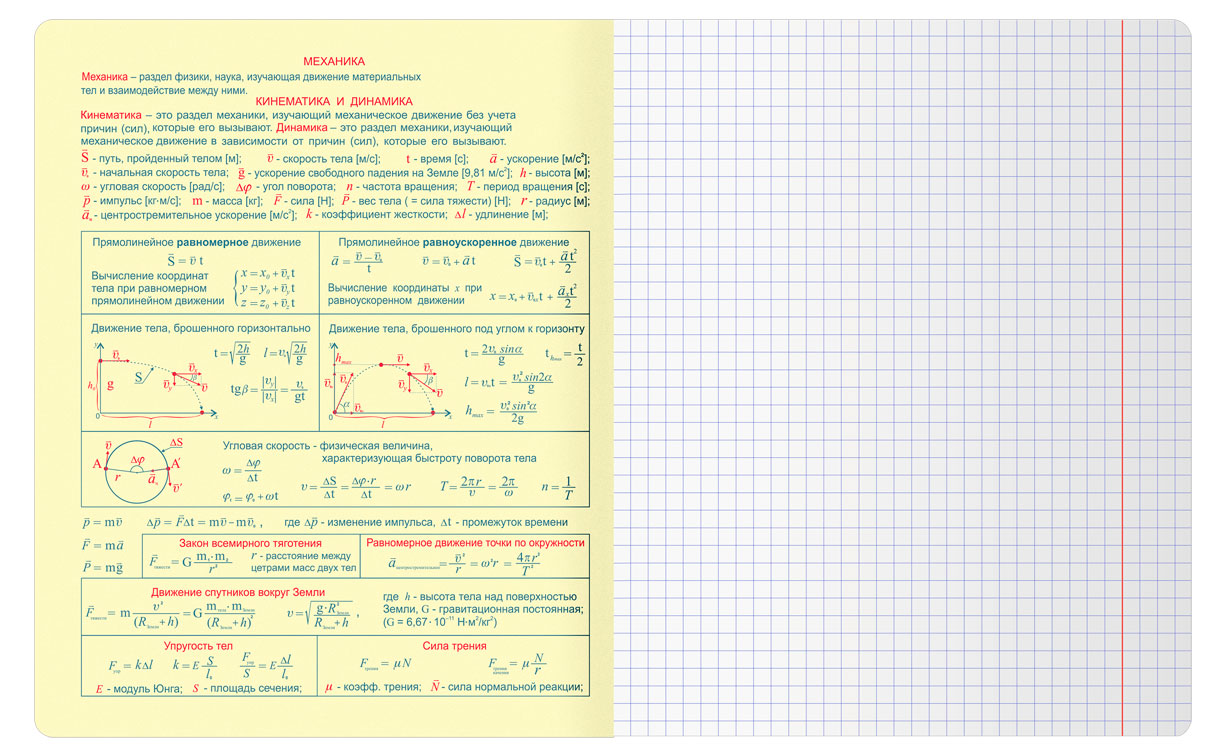 МЕХАНИКА
Механика – раздел физики, наука, изучающая движение материальных
тел и взаимодействие между ними.
КИНЕМАТИКА И ДИНАМИКА
Кинематика – это раздел механики, изучающий механическое движение без учета
причин (сил), которые его вызывают. Динамика – это раздел механики, изучающий
механическое движение в зависимости от причин (сил), которые его вызывают.
S̄ - путь, пройденный телом [м]; v̄ - скорость тела [м/с]; t - время [с]; ā - ускорение [м/с²];
v̄₀ - начальная скорость тела; ḡ - ускорение свободного падения на Земле [9,81 м/с²]; h - высота [м];
ω - угловая скорость [рад/с]; Δφ - угол поворота; n - частота вращения; T - период вращения [с];
p̄ - импульс [кг·м/с]; m - масса [кг]; F̄ - сила [Н]; P̄ - вес тела ( = сила тяжести) [Н]; r - радиус [м];
āₙ - центростремительное ускорение [м/с²]; k - коэффициент жесткости; Δl - удлинение [м];
Прямолинейное равномерное движение
S̄ = v̄ t
Вычисление координат
тела при равномерном
прямолинейном движении
x = x₀ + v̄ₓt
y = y₀ + v̄ᵧt
z = z₀ + v̄_zt
Прямолинейное равноускоренное движение
ā = (v̄ – v̄₀)/t v̄ = v̄₀ + ā t S̄ = v̄₀t + āt²/2
Вычисление координаты x при
равноускоренном движении
x = x₀ + v̄₀ₓt + āₓt²/2
Движение тела, брошенного горизонтально
y v̄₀ h₀ g S v̄ₓ v̄ᵧ β v̄ 0 x l
t = √(2h/g) l = v₀√(2h/g)
tgβ = |vᵧ|/|vₓ| = v₀/gt
Движение тела, брошенного под углом к горизонту
y h_max v̄ v̄₀ v̄ₓ v̄ᵧ β α 0 x l
t = 2v₀ sinα/g t_hmax = t/2
l = v₀t = v₀² sin2α/g
h_max = v₀² sin²α/2g
v̄ ΔS A Δφ A' r āₙ v̄'
Угловая скорость - физическая величина,
характеризующая быстроту поворота тела
ω = Δφ/Δt
φₜ = φ₀ + ωt
v = ΔS/Δt = Δφ·r/Δt = ωr T = 2πr/v = 2π/ω n = 1/T
p̄ = mv̄ Δp̄ = F̄Δt = mv̄ – mv̄₀ , где Δp̄ - изменение импульса, Δt - промежуток времени
F̄ = mā
P̄ = mḡ
Закон всемирного тяготения
F̄тяжести = G m₁·m₂/r²
r - расстояние между
цетрами масс двух тел
Равномерное движение точки по окружности
āцентростремительное = v̄²/r = ω²r = 4πr²/T²
Движение спутников вокруг Земли
F̄тяжести = m v²/(Rземли + h) = G mтела·mЗемли/(Rземли + h)² v = √(g·R²Земли/(RЗемли + h)) ,
где h - высота тела над поверхностью
Земли, G - гравитационная постоянная;
(G = 6,67·10⁻¹¹ Н·м²/кг²)
Упругость тел
Fупр = kΔl k = E S/l₀ Fупр/S = E Δl/l₀
E - модуль Юнга; S - площадь сечения;
Сила трения
Fтрения = μN Fтрения качения = μ N/r
μ - коэфф. трения; N̄ - сила нормальной реакции;